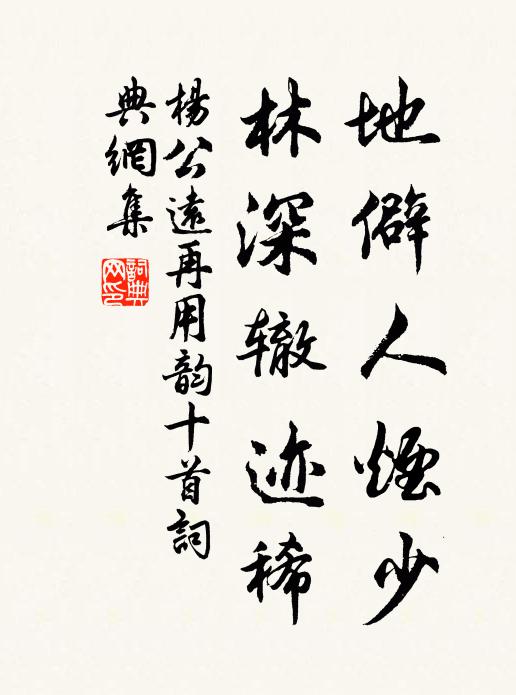 地僻人煙少
林深辙迹稀
楊公遠再用韵十首詞
典網集
詞典
网印